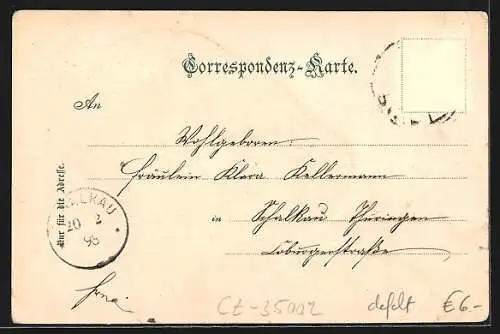 Correspondenz-Karte.
An
Wohlgeboren:
Fräulein Klara Kellermann
in Schalkau Thüringen
Coburgerstraße
Nur für die Adresse.
SCHALKAU
20 2
98
CZ-35002
defekt €6.-